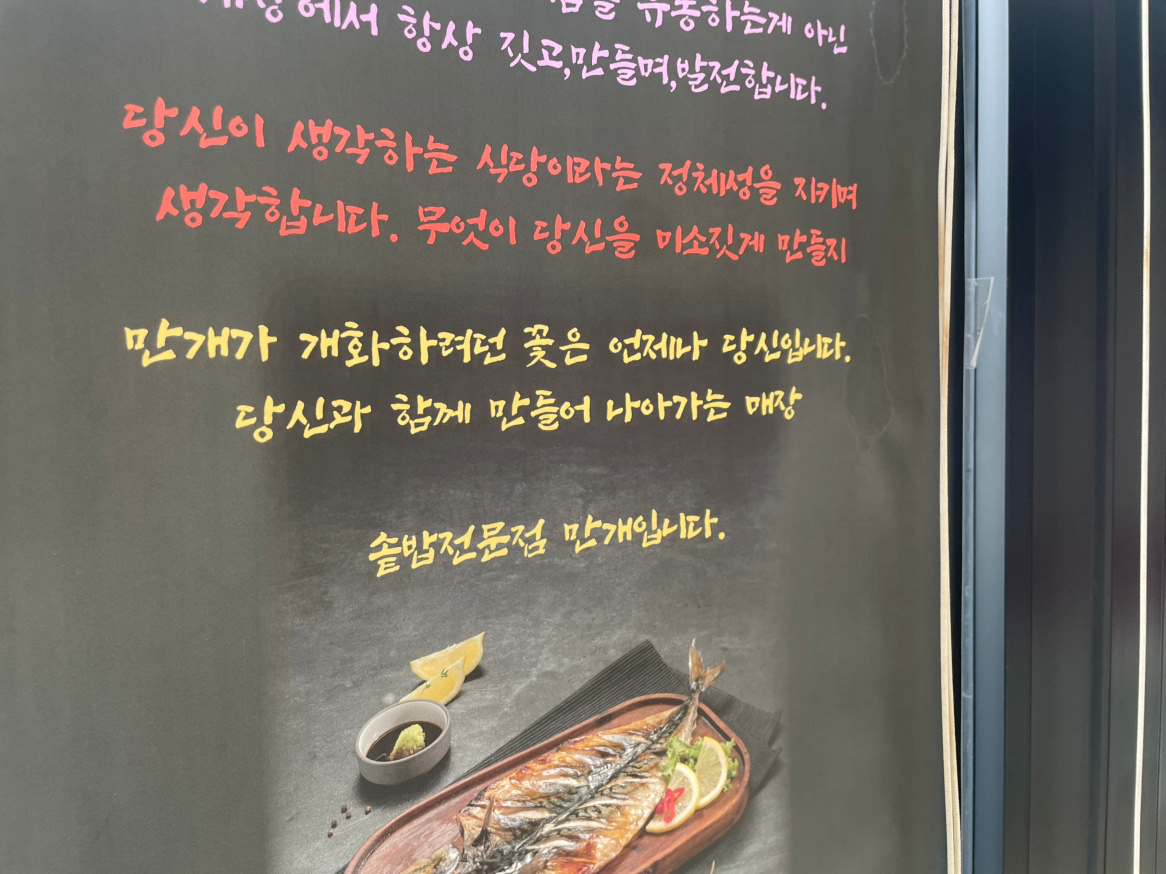 유통하는게 아닌
에서 항상 짓고,만들며,발전합니다.
당신이 생각하는 식당이라는 정체성을 지키며
생각합니다. 무엇이 당신을 미소짓게 만들지
만개가 개화하려던 꽃은 언제나 당신입니다.
당신과 함께 만들어 나아가는 매장
솥밥전문점 만개입니다.